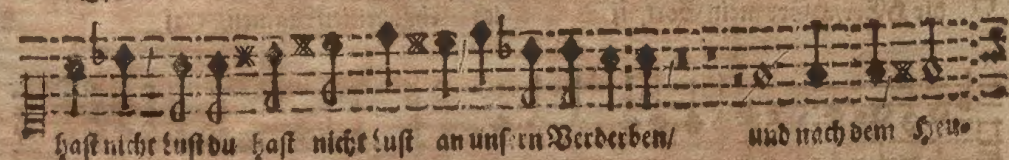 hast nicht Lust du hast nicht Lust an unsern Verderben/ und nach dem Heu-